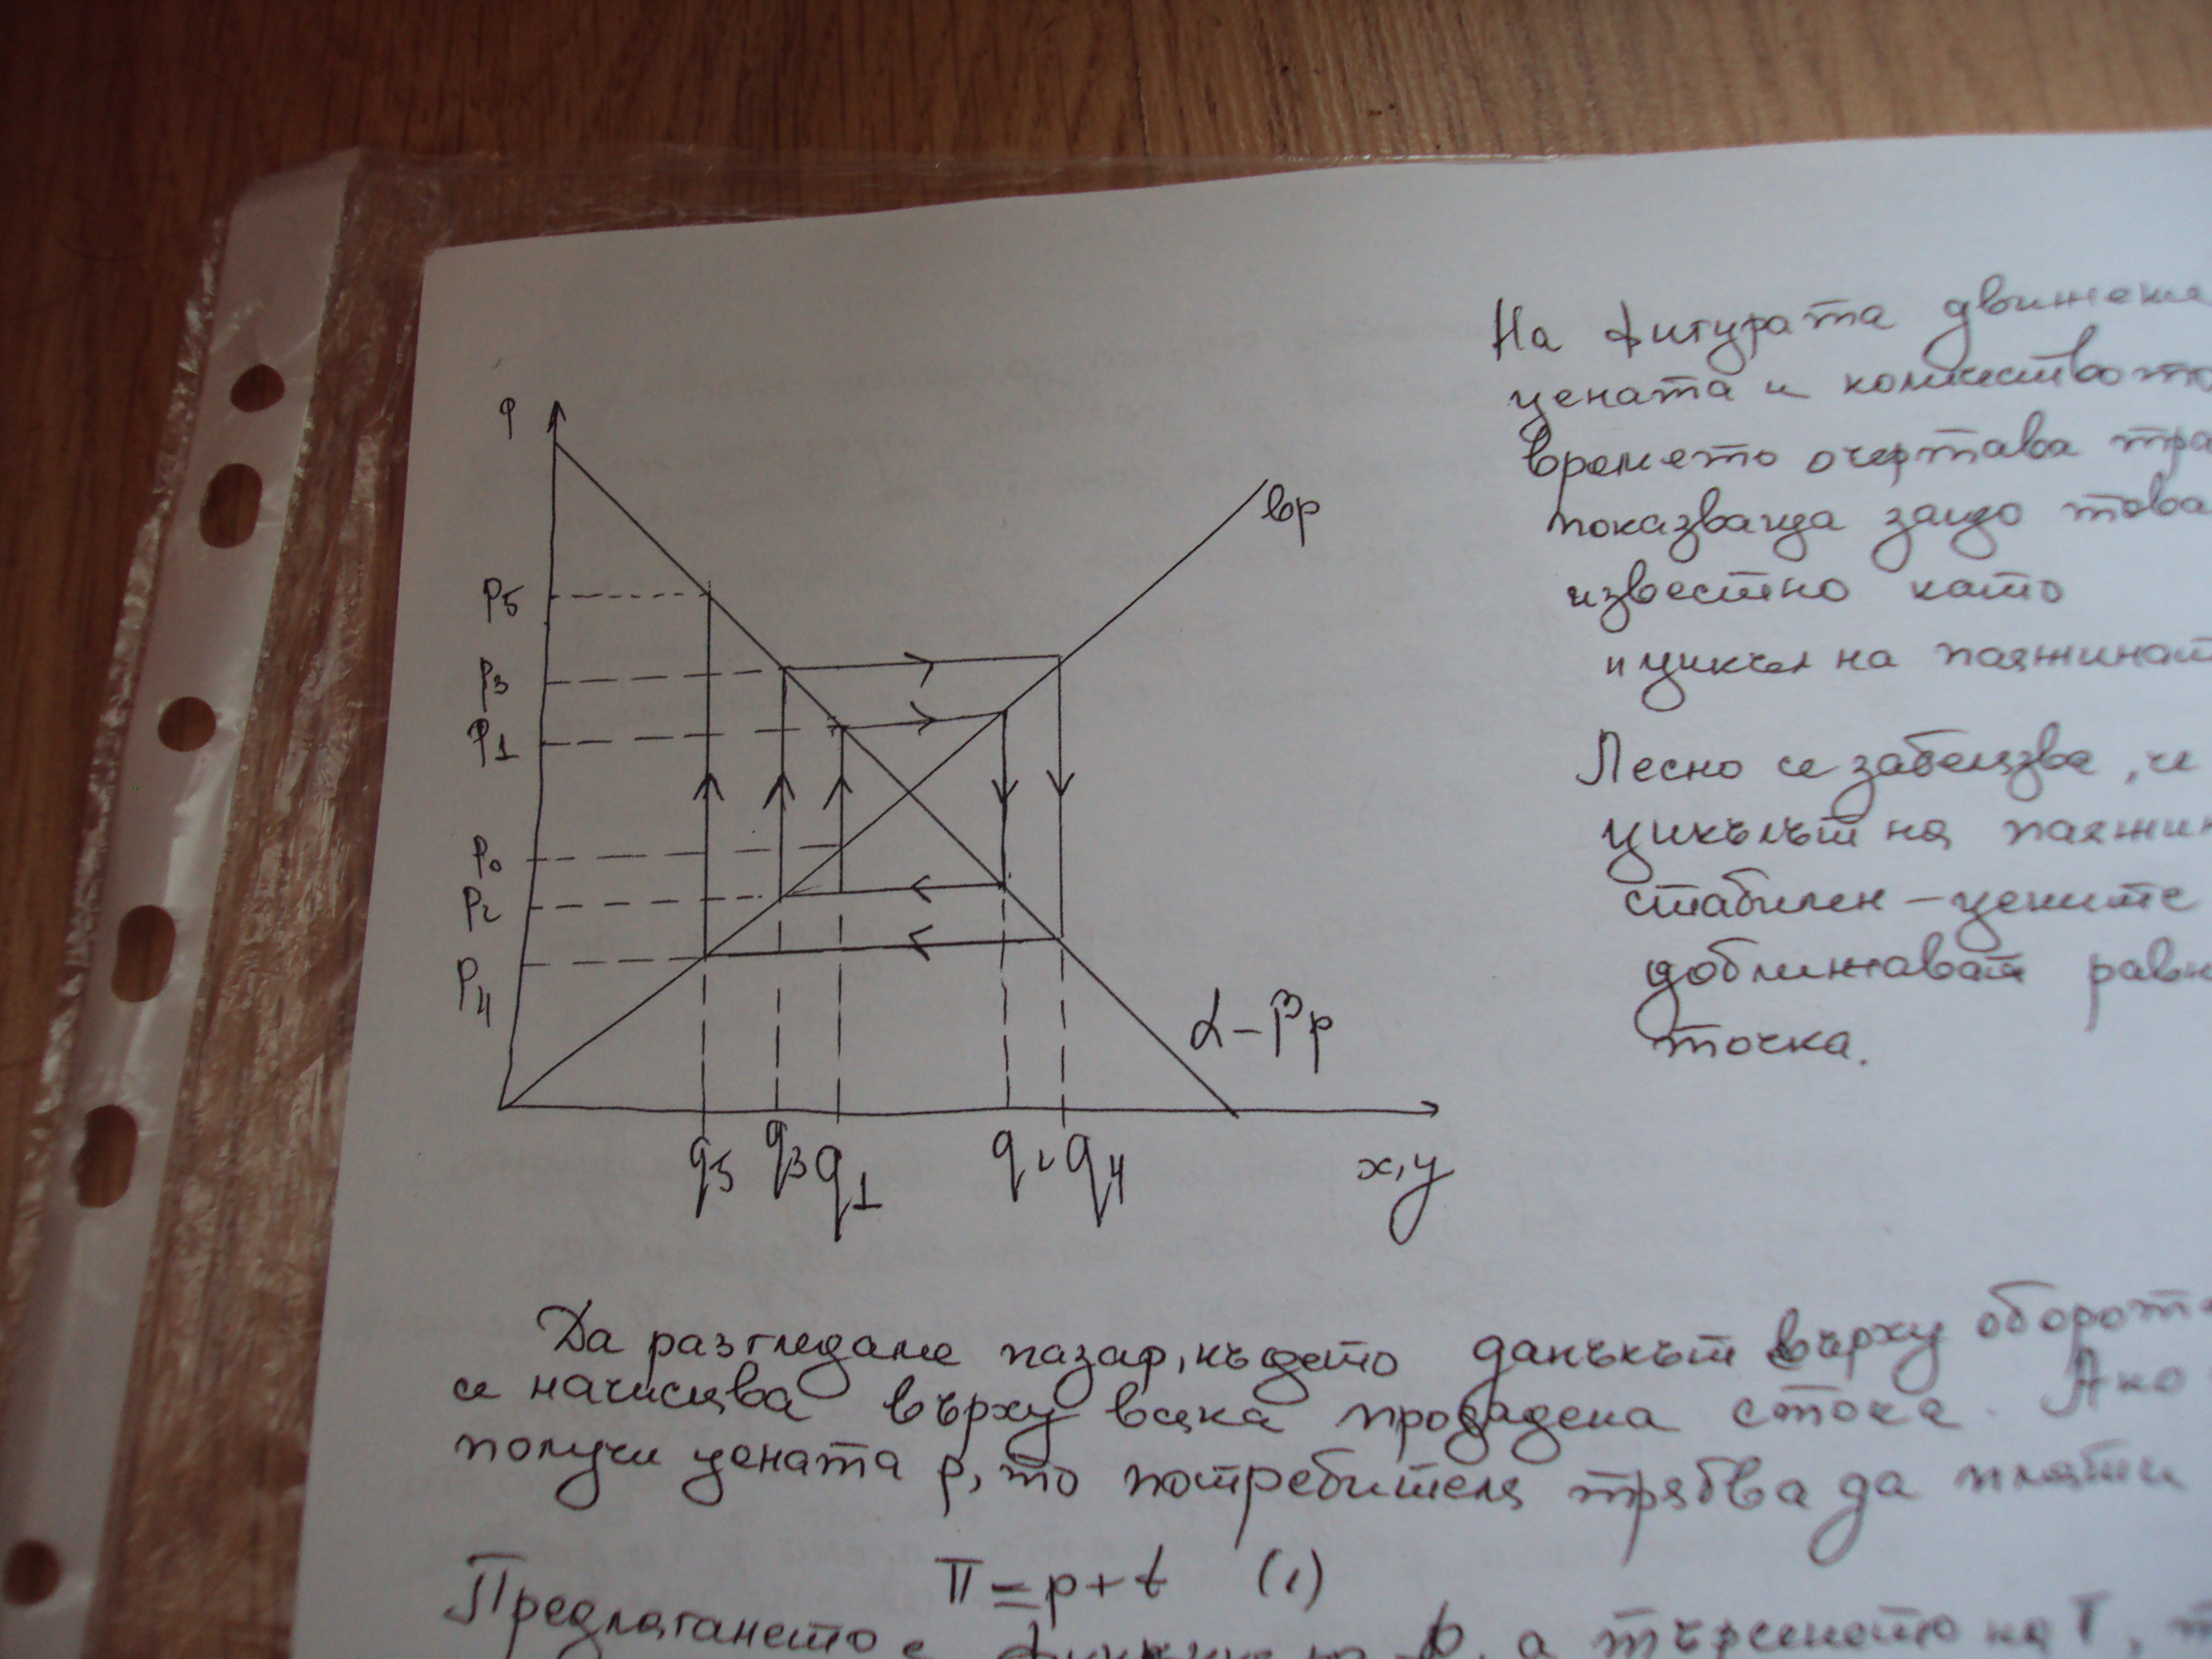 p
bp
p5
p3
p1
p0
p2
p4
α-βp
q5 q3 q1 q2 q4
x,y
На фигурата движени
цената и количество
времето очертава тра
показваща защо това
известно като
"цикъл на паяжинат
Лесно се забелязва, че
цикълът на паяжин
стабилен – цените
доближават равн
точка.
Да разгледаме пазар, където данъкът върху оборот
се начислява върху всяка продадена стока. Ако
получи цената p, то потребителя трябва да плати
П = p + t (1)
Предлагането е p, а търсенето на